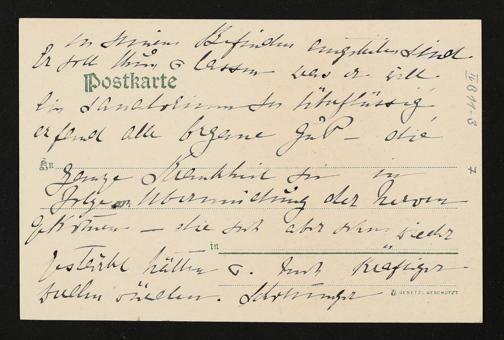 in seinem Befinden eingetreten sind.
Er soll thun & lassen was er will
Postkarte
Ein Sanatorium sei überflüssig
er fand alle Organe gut – die
An
ganze Krankheit sei in
Folge von Übermüdung der Nerven
gekommen – die sich aber schon sehr
in
gestärkt hätten &. noch kräftiger
werden würden.
GESETZL. GESCHÜTZT
III B 11-3
7